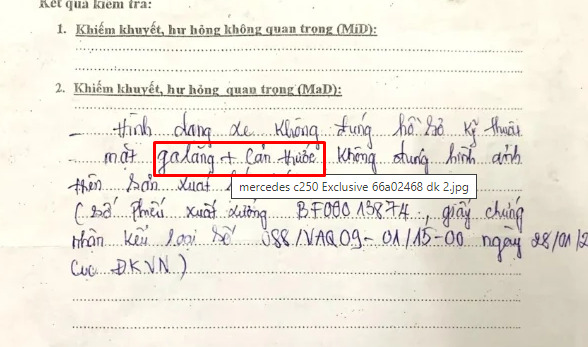 Kết quả kiểm tra:
1. Khiếm khuyết, hư hỏng không quan trọng (MiD):
2. Khiếm khuyết, hư hỏng quan trọng (MaD):
- Hình dạng xe không đúng hồ sơ kỹ thuật
mặt galăng + Cản trước không đúng hình ảnh
trên bản xuất
mercedes c250 Exclusive 66a02468 dk 2.jpg
(số phiếu xuất xưởng BF0001387A, giấy chứng
nhận kiểu loại số 088/VAQ09-01/15-00 ngày 28/01/2
Cục ĐKVN)